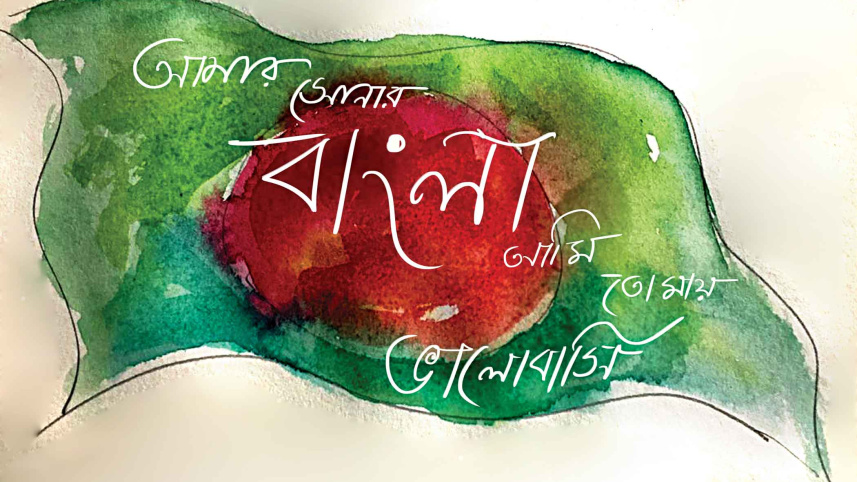 আমার
সোনার
বাংলা
আমি
তোমায়
ভালোবাসি